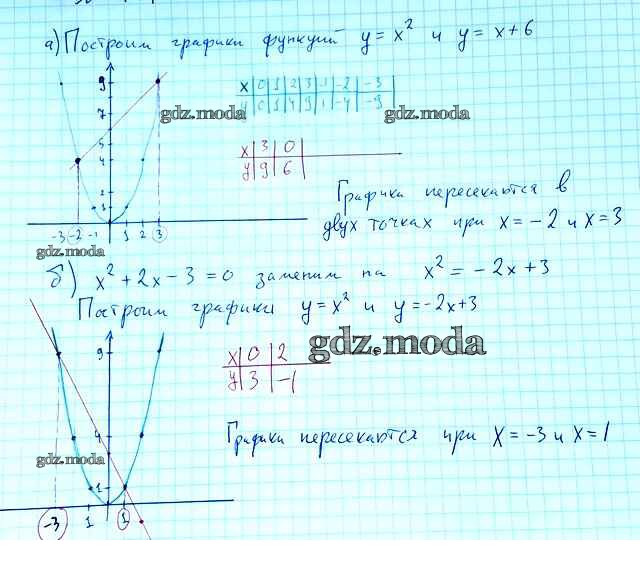 а) Построим графики функций y = x² и y = x+6
9
7
5
4
2
1
-3 -2 -1 1 2 3
x 0 1 2 3 -1 -2 -3
y 0 1 4 9 1 -4 -9
gdz.moda
gdz.moda
x 3 0
y 9 6
Графики пересекаются в
двух точках при x = -2 и x = 3
gdz.moda
б) x² + 2x - 3 = 0 заменим на x² = -2x + 3
Построим графики y = x² и y = -2x+3
gdz.moda
9
4
1
-3 1 1
x 0 2
y 3 -1
Графики пересекаются при x = -3 и x = 1
gdz.moda